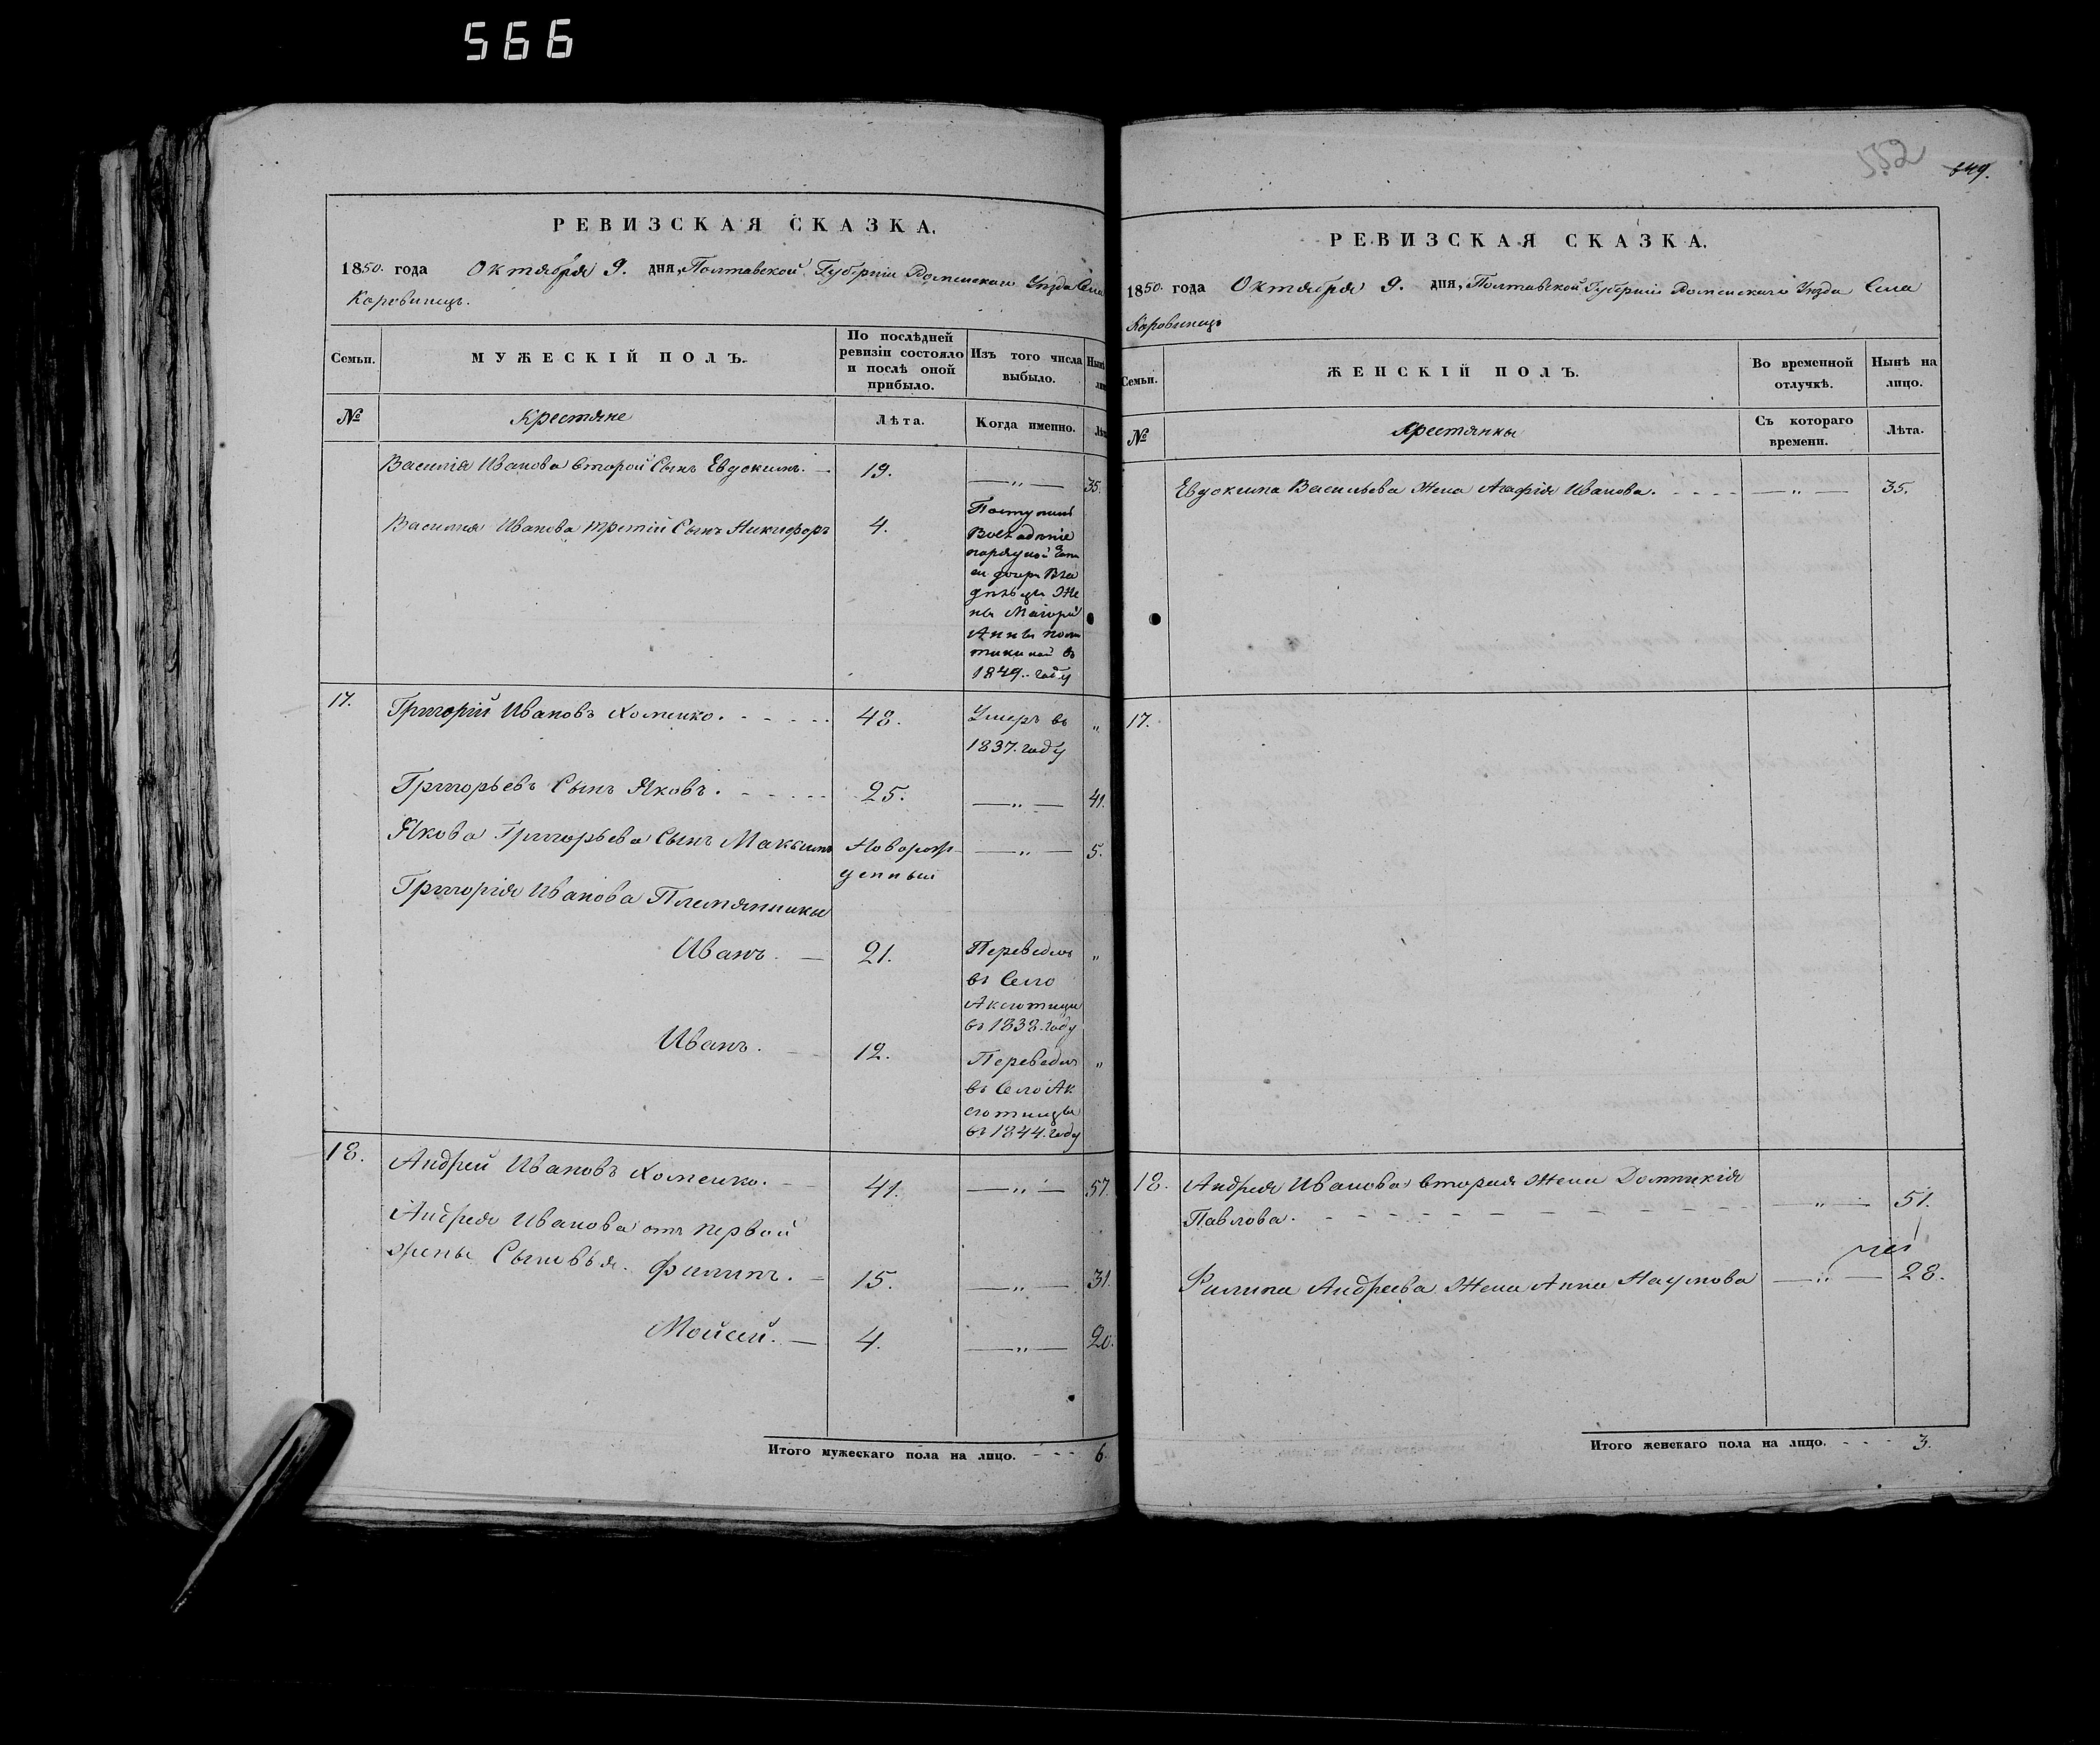 566
РЕВИЗСКАЯ СКАЗКА.
1850. года Октября 9. дня, Полтавской Губерніи Роменскаго Уѣзда Села
Коровинецъ.
Семьи.
МУЖЕСКІЙ ПОЛЪ.
По послѣдней
ревизіи состояло
и послѣ оной
прибыло.
Изъ того числа
выбыло.
№
Крестяне
Лѣта.
Когда именно.
Василія Иванова второй Сынъ Евдокимъ. 19. —„— 35.
Василія Иванова третій Сынъ Никифоръ 4.
Поступилъ
Анны
въ
1849. году
17. Григорій Ивановъ Хоменко. 48. Умеръ въ „
1837. году
Григорьевъ Сынъ Яковъ. 25. —„— 41.
Якова Григорьева Сынъ Максимъ Новорож- —„— 5.
денный
Григорія Иванова Племянники
Иванъ. — 21. Переведенъ „
въ Село
Аксютинци
въ 1838. году
Иванъ. 12. Переведенъ „
въ Село Ак
сютинцы
въ 1844. году
18. Андрей Ивановъ Хоменко. — 41. —„— 57.
Андрея Иванова отъ первой
жены Сыновья. Филипъ. — 15. —„— 31.
Мойсей. — 4. —„— 20.
Итого мужескаго пола на лицо. - - - 6.
552
549.
РЕВИЗСКАЯ СКАЗКА.
1850. года Октября 9. дня, Полтавской Губерніи Роменскаго Уѣзда Села
Коровинецъ
Семьи.
ЖЕНСКІЙ ПОЛЪ.
Во временной
отлучкѣ.
Нынѣ на
лицо.
№
Крестянки
Съ котораго
времени.
Лѣта.
Евдокима Васильева Жена Агафія Иванова. - - - - —„— 35.
17.
18. Андрея Иванова вторая Жена Домникія
Павлова. - - - - - - - - - —„— 51.
Филипа Андреева Жена Анна Наумова —„— 28.
Итого женскаго пола на лицо. - - - 3.